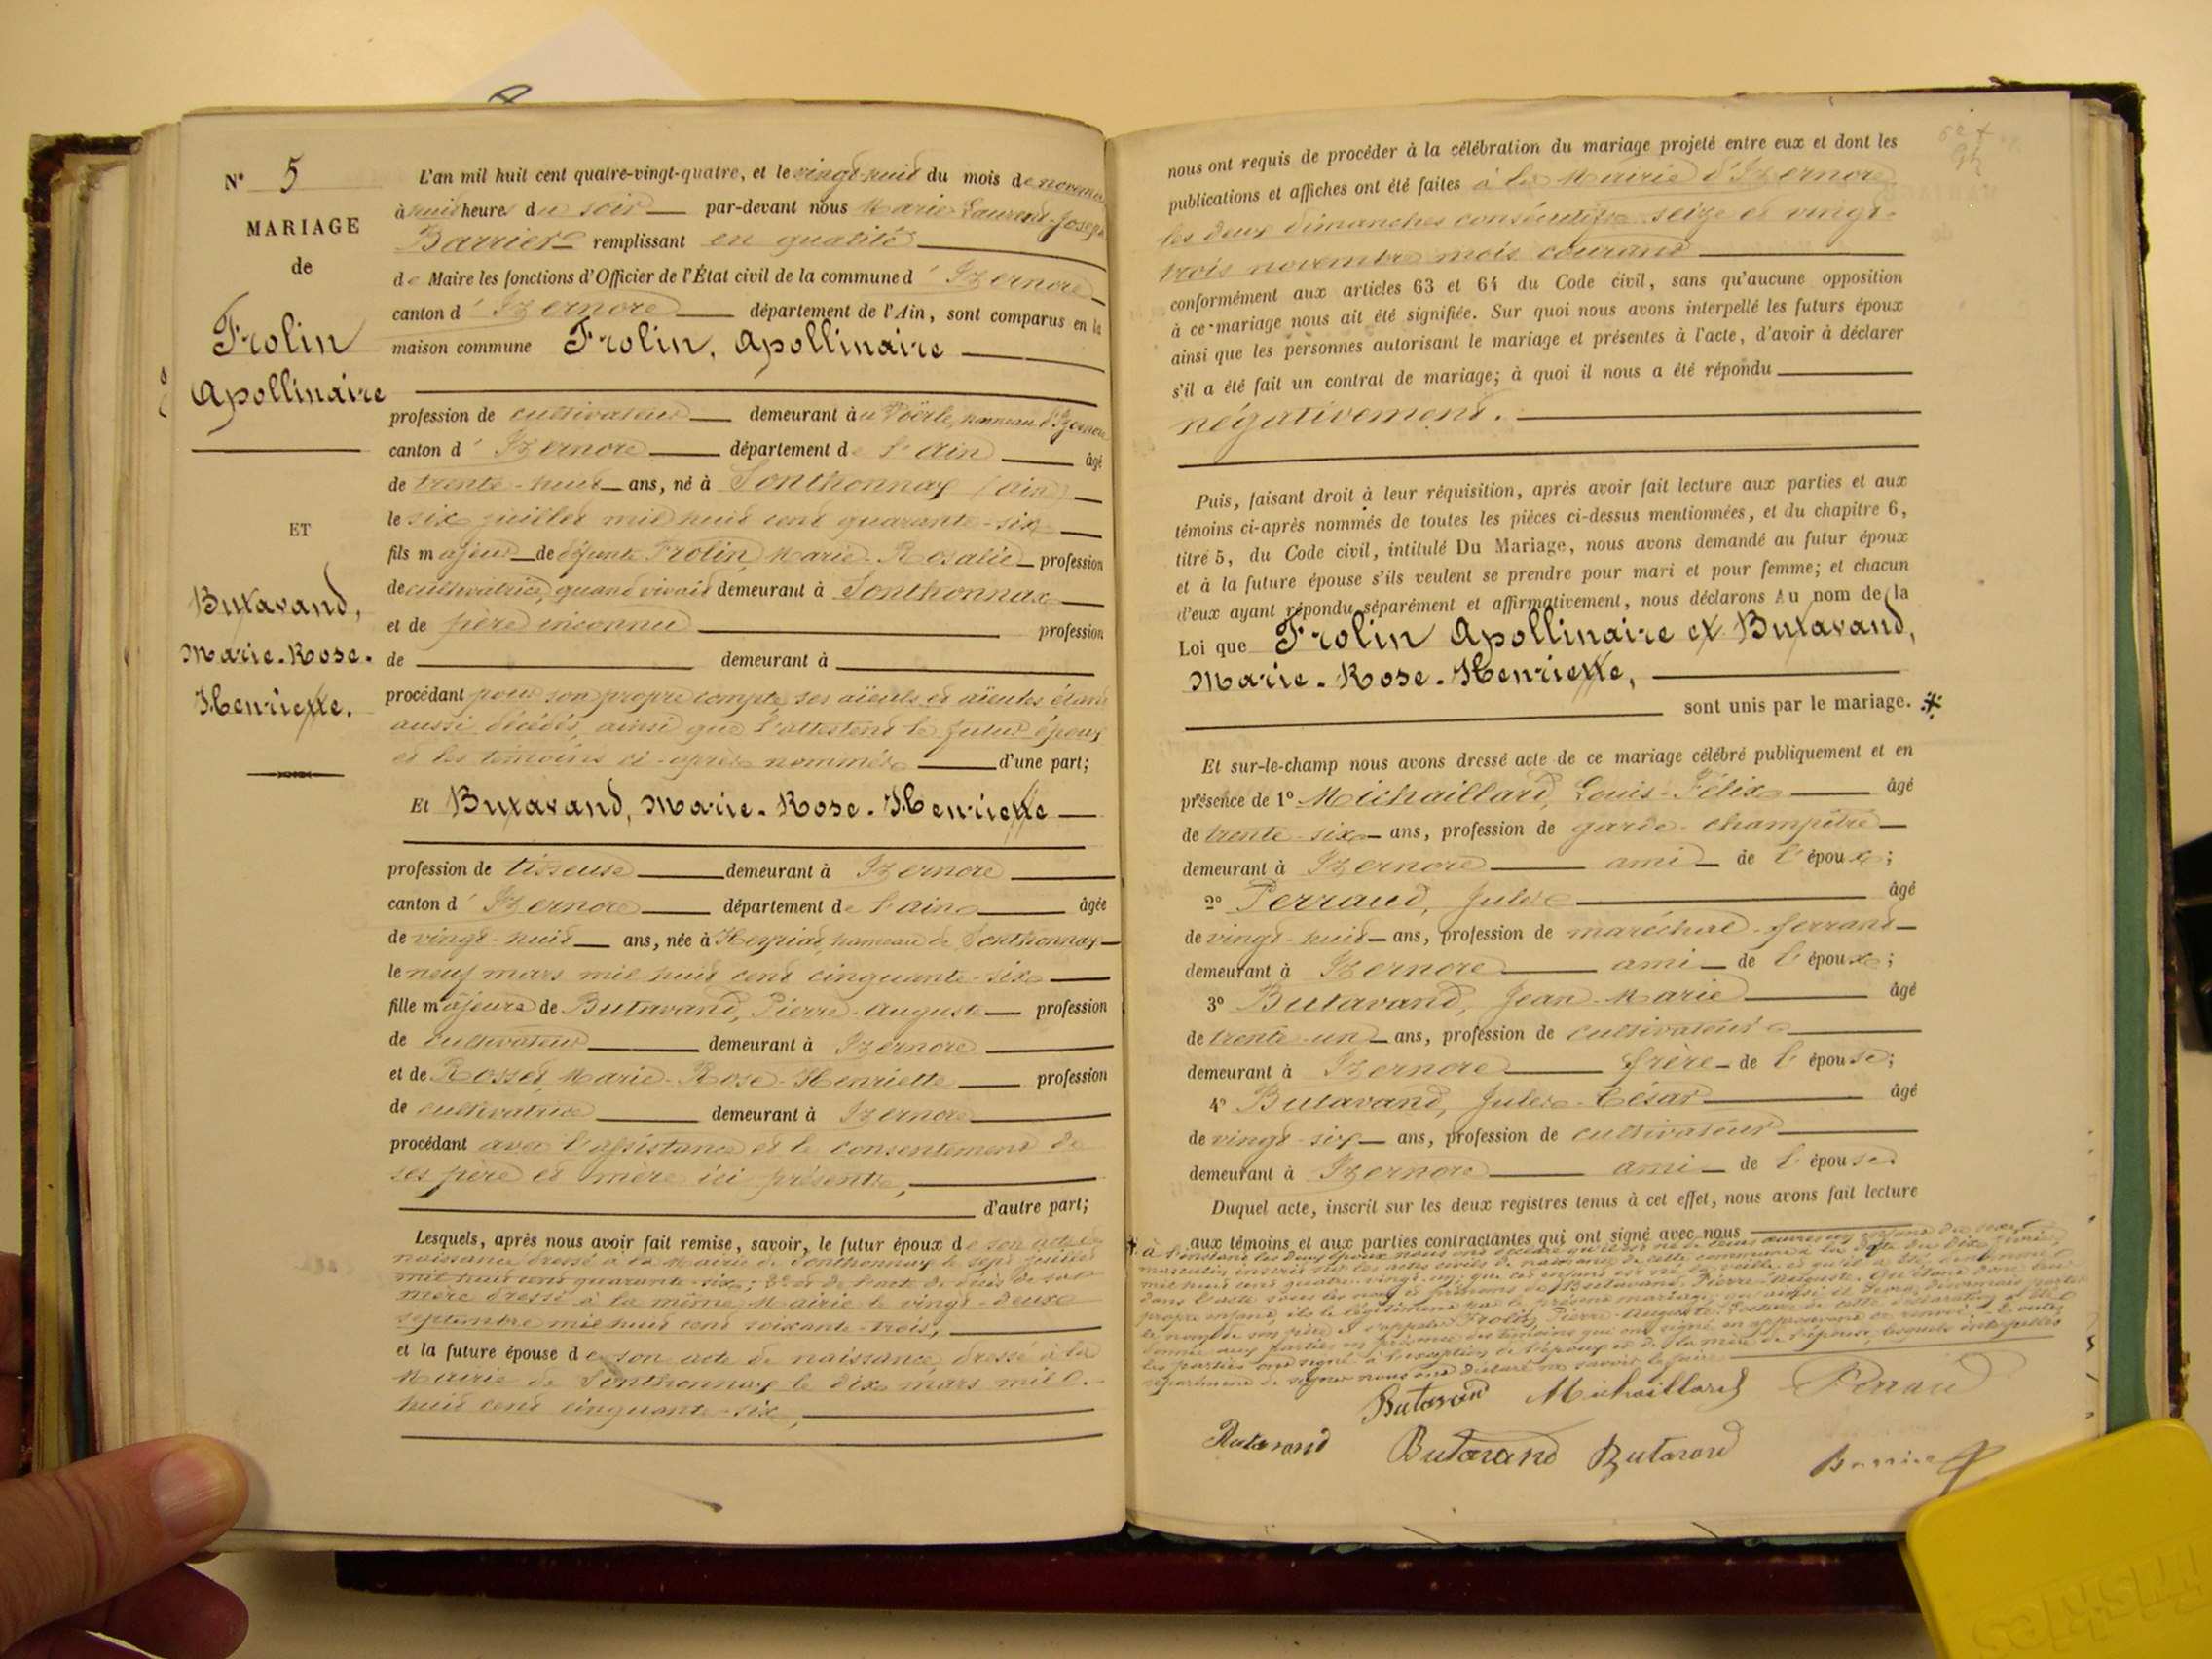 N° 5
MARIAGE
de
Frolin
Apollinaire
ET
Butavand,
Marie-Rose-
Henriette.
L'an mil huit cent quatre-vingt-quatre, et le vingt-huit du mois de novembre
à huit heures du soir par-devant nous Marie Laurent-Joseph
Barrier remplissant en qualité
de Maire les fonctions d'Officier de l'État civil de la commune d'Izernore
canton d'Izernore département de l'Ain, sont comparus en la
maison commune Frolin, Apollinaire
profession de cultivateur demeurant à hameau d'Izernore
canton d'Izernore département de l'Ain âgé
de trente-huit ans, né à Sonthonnax (Ain)
le six juillet mil huit cent quarante-six
fils majeur de défunte Frolin, Marie-Rosalie profession
de cultivatrice, quand vivait demeurant à Sonthonnax
et de père inconnu profession
de demeurant à
procédant pour son propre compte, ses aïeuls et aïeules étant
aussi décédés, ainsi que l'attestent le futur époux
et les témoins ci-après nommés d'une part;
Et Butavand, Marie-Rose-Henriette
profession de tisseuse demeurant à Izernore
canton d'Izernore département de l'Ain âgée
de vingt-huit ans, née à Heyriat, hameau de Sonthonnax
le neuf mars mil huit cent cinquante-six
fille majeure de Butavand, Pierre-Auguste profession
de cultivateur demeurant à Izernore
et de Rosset Marie-Rose-Henriette profession
de cultivatrice demeurant à Izernore
procédant avec l'assistance et le consentement de
ses père et mère ici présents,
d'autre part;
Lesquels, après nous avoir fait remise, savoir, le futur époux de son acte de
naissance dressé à la Mairie de Sonthonnax le sept juillet
mil huit cent quarante-six; 2° et de l'acte de décès de sa
mère dressé à la même Mairie le vingt-deux
septembre mil huit cent soixante-trois,
et la future épouse de son acte de naissance dressé à la
Mairie de Sonthonnax le dix mars mil
huit cent cinquante-six,
nous ont requis de procéder à la célébration du mariage projeté entre eux et dont les
publications et affiches ont été faites à la Mairie d'Izernore
les deux dimanches consécutifs seize et vingt-
trois novembre mois courant
conformément aux articles 63 et 64 du Code civil, sans qu'aucune opposition
à ce mariage nous ait été signifiée. Sur quoi nous avons interpellé les futurs époux
ainsi que les personnes autorisant le mariage et présentes à l'acte, d'avoir à déclarer
s'il a été fait un contrat de mariage; à quoi il nous a été répondu
négativement.
Puis, faisant droit à leur réquisition, après avoir fait lecture aux parties et aux
témoins ci-après nommés de toutes les pièces ci-dessus mentionnées, et du chapitre 6,
titre 5, du Code civil, intitulé Du Mariage, nous avons demandé au futur époux
et à la future épouse s'ils veulent se prendre pour mari et pour femme; et chacun
d'eux ayant répondu séparément et affirmativement, nous déclarons Au nom de la
Loi que Frolin Apollinaire et Butavand,
Marie-Rose-Henriette,
sont unis par le mariage.
Et sur-le-champ nous avons dressé acte de ce mariage célébré publiquement et en
présence de 1° Michaillard, Louis-Félix âgé
de trente-six ans, profession de garde-champêtre
demeurant à Izernore ami de l'époux;
2° Perraud, Jules âgé
de vingt-huit ans, profession de maréchal-ferrant
demeurant à Izernore ami de l'époux;
3° Butavand, Jean-Marie âgé
de trente-un ans, profession de cultivateur
demeurant à Izernore frère de l'épouse;
4° Butavand, Jules-César âgé
de vingt-six ans, profession de cultivateur
demeurant à Izernore ami de l'épouse
Duquel acte, inscrit sur les deux registres tenus à cet effet, nous avons fait lecture
aux témoins et aux parties contractantes qui ont signé avec nous
à l'instant les deux époux nous ont déclaré qu'il est né de leurs œuvres un enfant du sexe
masculin inscrit sur les actes civils de naissance de cette commune à la date du dix
mil huit cent quatre-vingt-un, que cet enfant est né la veille et qu'il a été dénommé
dans l'acte sous les nom et prénoms de Butavand, Pierre-Auguste. Qu'étant donc leur
propre enfant, ils le légitiment par le présent mariage, qu'ainsi il devra désormais porter
le nom de son père et s'appeler Frolin, Pierre-Auguste. Lecture de cette déclaration a été
donnée aux parties en présence des témoins qui ont signé en approuvant ce renvoi
les parties ont signé à l'exception de l'époux et de la mère de l'épouse, lesquels interpellés
séparément de signer nous ont déclaré ne savoir le faire
Butavand Michaillard Perraud
Butavand Butavand Butavand Barrier